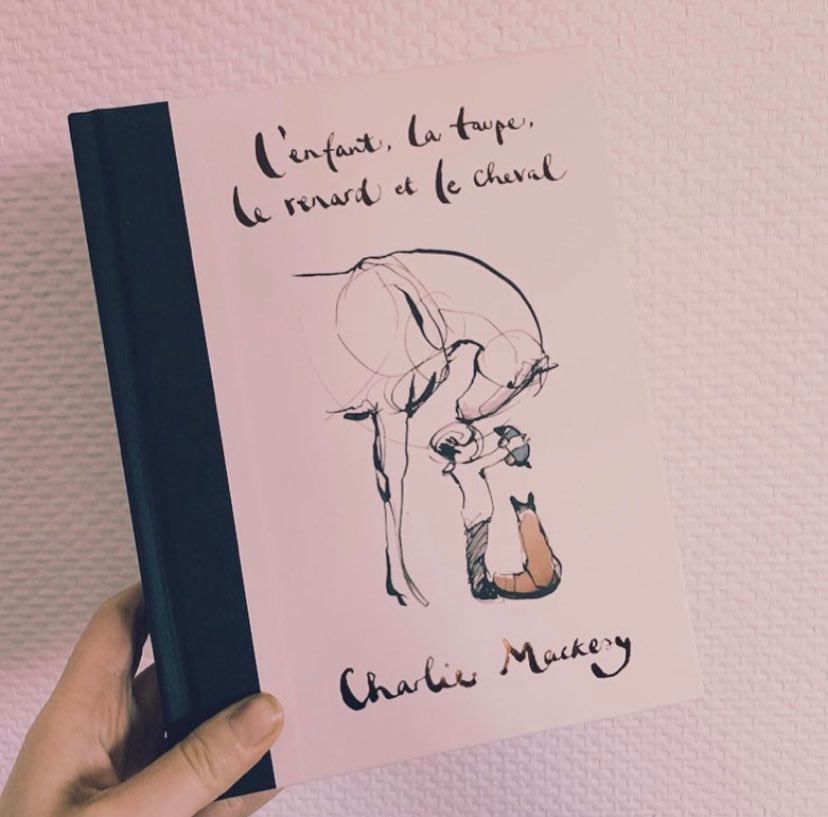 l'enfant, la taupe,
le renard et le cheval
Charlie Mackesy